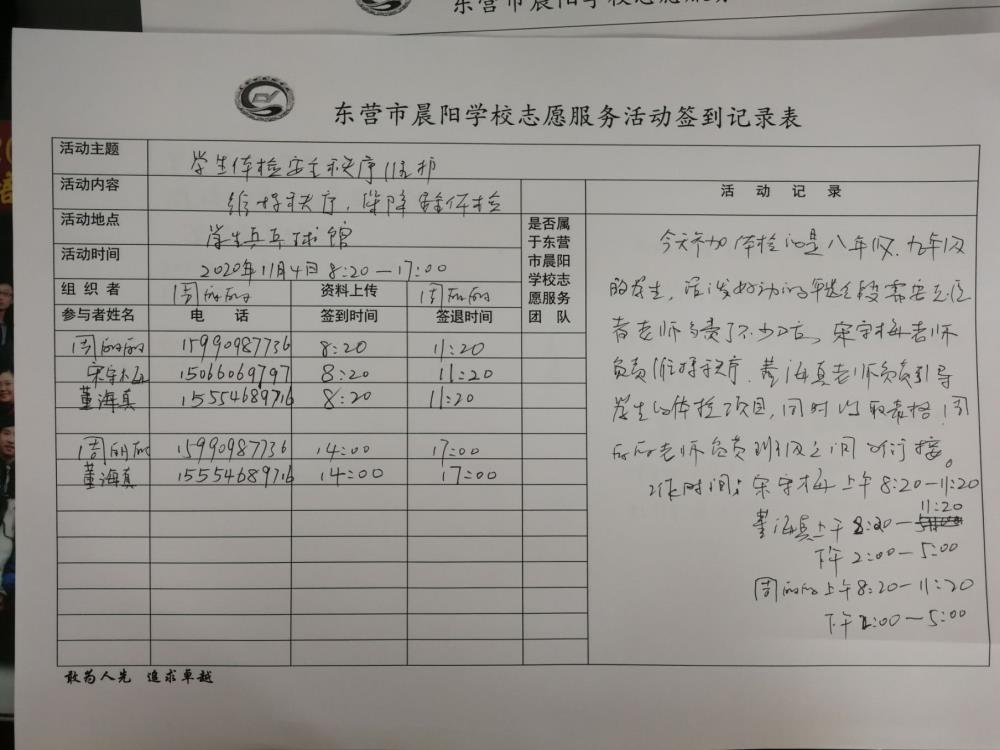 东营市晨阳学校志愿服务活动签到记录表
活动主题 学生体检安全秩序维护
活动内容 维持秩序,保障 体检
活动地点 学生乒乓球馆
活动时间 2020年11月4日 8:20—17:00
组织者 周 资料上传 周
参与者姓名 电话 签到时间 签退时间
是否属于东营市晨阳学校志愿服务团队
周 15990987736 8:20 11:20
宋守梅 15066069797 8:20 11:20
董海真 15554689716 8:20 11:20
周 15990987736 14:00 17:00
董海真 15554689716 14:00 17:00
活动记录
今天参加体检的是八年级、九年级
的学生,活泼好动的年龄段需要志愿
者老师负责 宋守梅老师
负责维持秩序,董海真老师负责引导
学生的体检项目,同时收表格,周
老师负责班级之间的 接。
工作时间:宋守梅 上午 8:20—11:20
董海真上午 8:20—11:20
下午 2:00—5:00
周 上午 8:20—11:20
下午 2:00—5:00
敢为人先 追求卓越